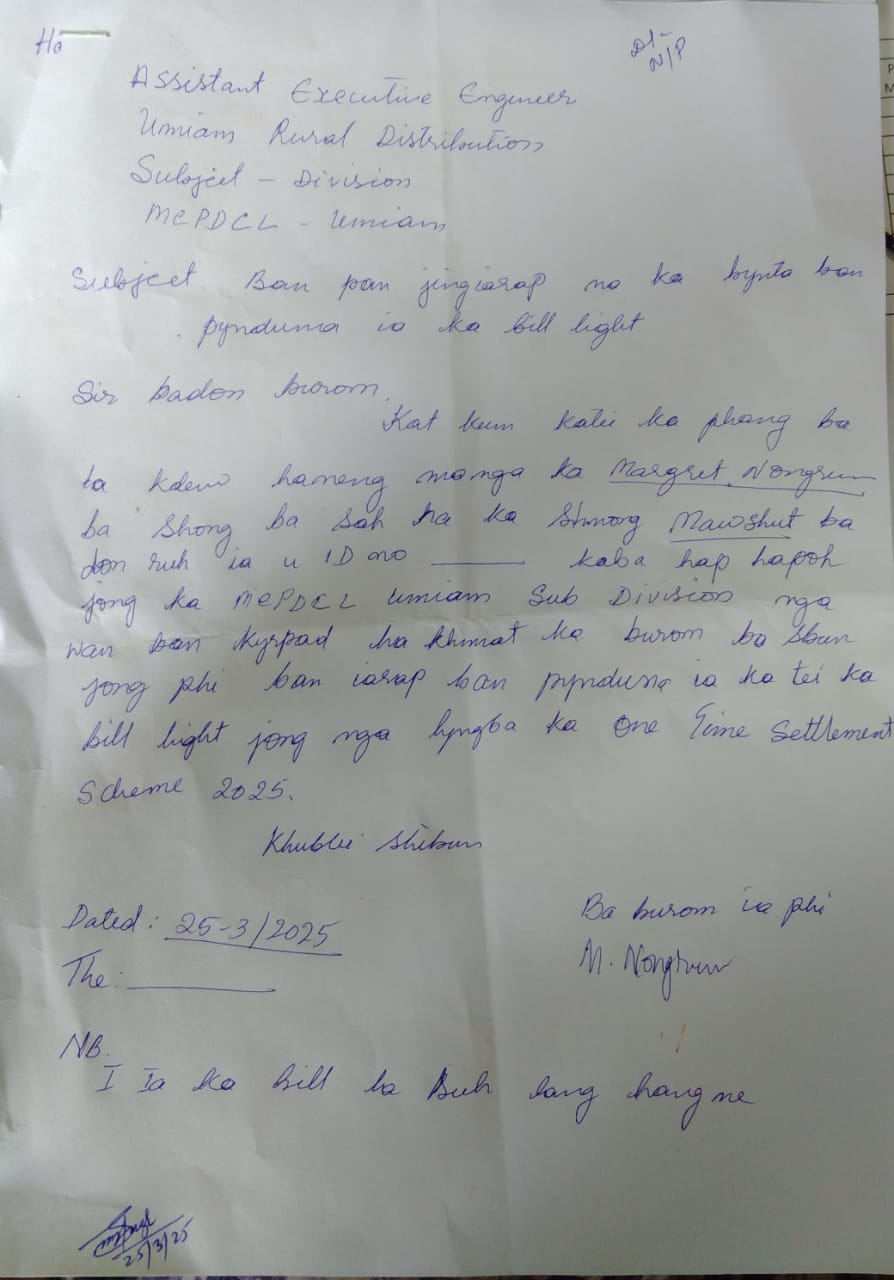 Ha
N/P
Assistant Executive Engineer
Umiam Rural Distribution
Subject - Division
MePDCL - Umiam
Subject. Ban pan jingiarap na ka bynta ban
pynduna ia ka bill light
Sir badon burom,
Kat kum katei ka phang ba
la kdew haneng ma nga ka Margret Nongrum
ba shong ba sah ha ka Shnong Mawshut ba
don ruh ia u ID no ______ kaba hap hapoh
jong ka MePDCL Umiam Sub Division nga
wan ban kyrpad ha khmat ka burom ba sbun
jong phi ban iarap ban pynduna ia ka tei ka
bill light jong nga lyngba ka One Time Settlement
Scheme 2025.
Khublei shibun
Dated: 25-3/2025
Ba burom ia phi
The: ______
M. Nongrum
NB.
I Ia ka bill la Buh lang hangne
25/3/25